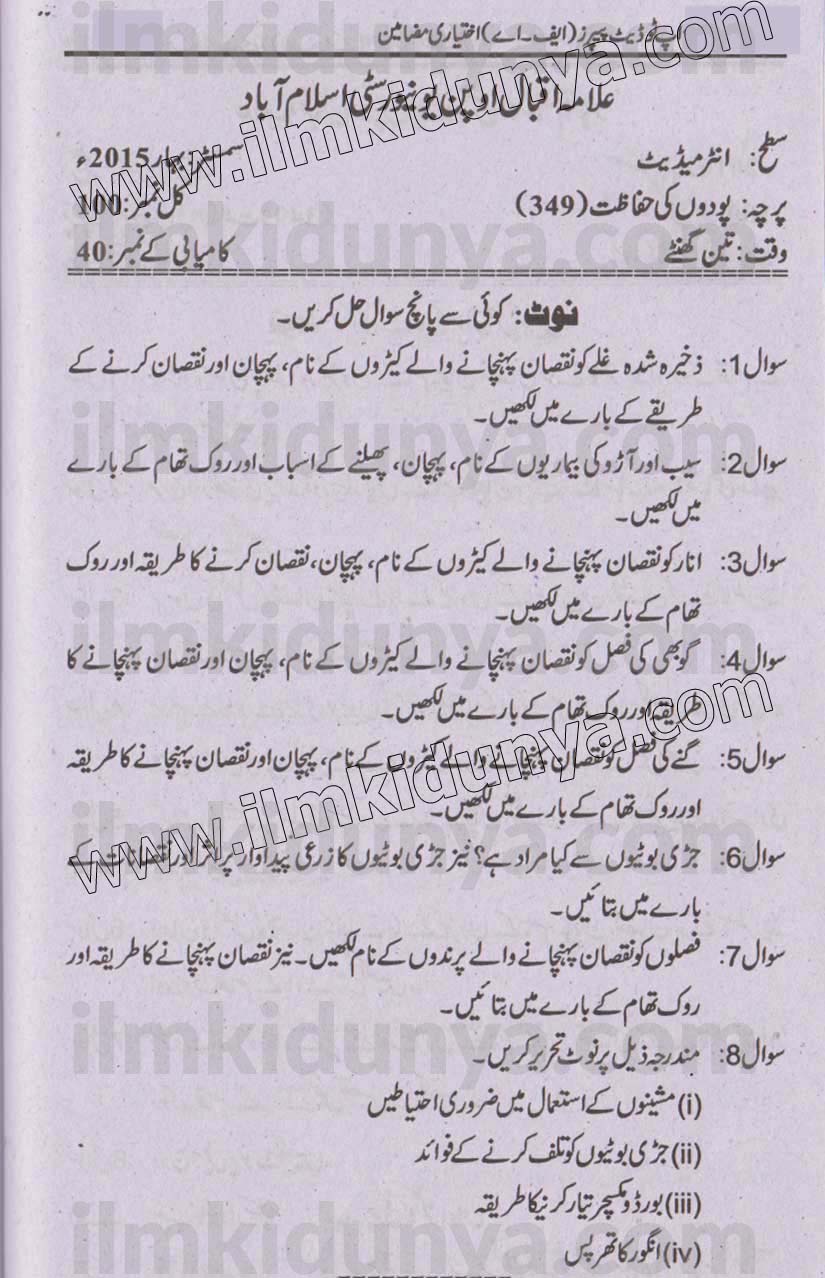 اپ ٹو ڈیٹ پیپرز (ایف۔اے) اختیاری مضامین
علامہ اقبال اوپن یونیورسٹی اسلام آباد
سطح: انٹرمیڈیٹ سمسٹر: بہار 2015ء
پرچہ: پودوں کی حفاظت (349) کل نمبر: 100
وقت: تین گھنٹے کامیابی کے نمبر: 40
نوٹ: کوئی سے پانچ سوال حل کریں۔
سوال 1: ذخیرہ شدہ غلے کو نقصان پہنچانے والے کیڑوں کے نام، پہچان اور نقصان کرنے کے
طریقے کے بارے میں لکھیں۔
سوال 2: سیب اور آڑو کی بیماریوں کے نام، پہچان، پھیلنے کے اسباب اور روک تھام کے بارے
میں لکھیں۔
سوال 3: انار کو نقصان پہنچانے والے کیڑوں کے نام، پہچان، نقصان کرنے کا طریقہ اور روک
تھام کے بارے میں لکھیں۔
سوال 4: گوبھی کی فصل کو نقصان پہنچانے والے کیڑوں کے نام، پہچان اور نقصان پہنچانے کا
طریقہ اور روک تھام کے بارے میں لکھیں۔
سوال 5: گنے کی فصل کو نقصان پہنچانے والے کیڑوں کے نام، پہچان اور نقصان پہنچانے کا طریقہ
اور روک تھام کے بارے میں لکھیں۔
سوال 6: جڑی بوٹیوں سے کیا مراد ہے؟ نیز جڑی بوٹیوں کا زرعی پیداوار پر اثر اور نقصانات کے
بارے میں بتائیں۔
سوال 7: فصلوں کو نقصان پہنچانے والے پرندوں کے نام لکھیں۔ نیز نقصان پہنچانے کا طریقہ اور
روک تھام کے بارے میں بتائیں۔
سوال 8: مندرجہ ذیل پر نوٹ تحریر کریں۔
(i) مشینوں کے استعمال میں ضروری احتیاطیں
(ii) جڑی بوٹیوں کو تلف کرنے کے فوائد
(iii) بورڈو مکسچر تیار کرنیکا طریقہ
(iv) انگور کا تھرپس
www.ilmkidunya.com
www.ilmkidunya.com
ilmkidunya.com
ilmkidunya.com
ilmkidunya.com
ilmkidunya.com
ilmkidunya.com
ilmkidunya.com
ilmkidunya.com